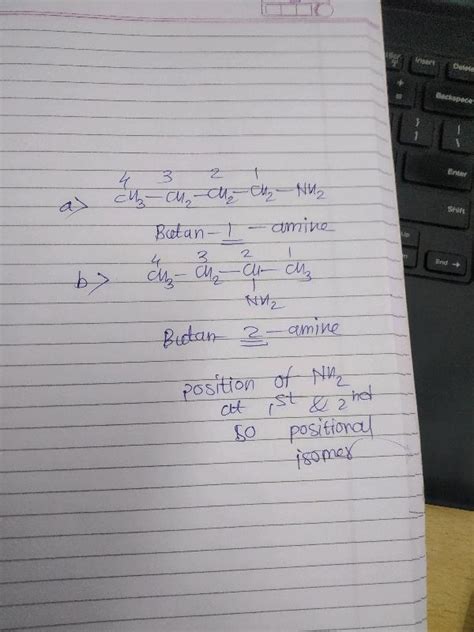 4 3 2 1
a> CH3-CH2-CH2-CH2-NH2
Butan-1-amine
4 3 2 1
b> CH3-CH2-CH-CH3
NH2
Butan 2-amine
position of NH2
at 1st & 2nd
so positional
isomer
Insert
Delete
Backspace
Enter
Shift
End